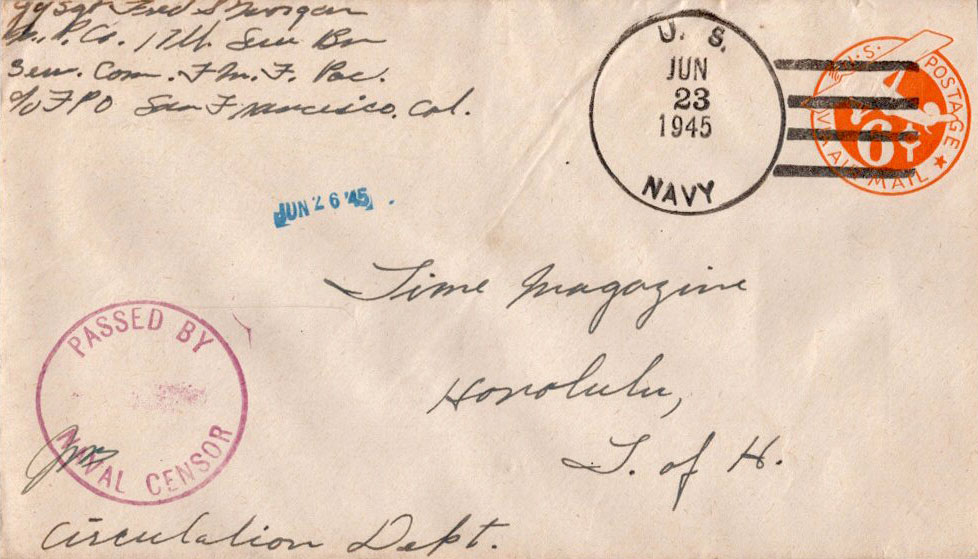 Gy Sgt Fred S Morgan
H. P. Co. 17th. Serv Bn
Serv. Com. F. M. F. Pac.
c/o FPO San Francisco, Cal.
U. S.
JUN
23
1945
NAVY
U.S. POSTAGE
6¢
VIA AIR MAIL
JUN 26 '45
Time Magazine
Honolulu,
T. of H.
PASSED BY
NAVAL CENSOR
Circulation Dept.